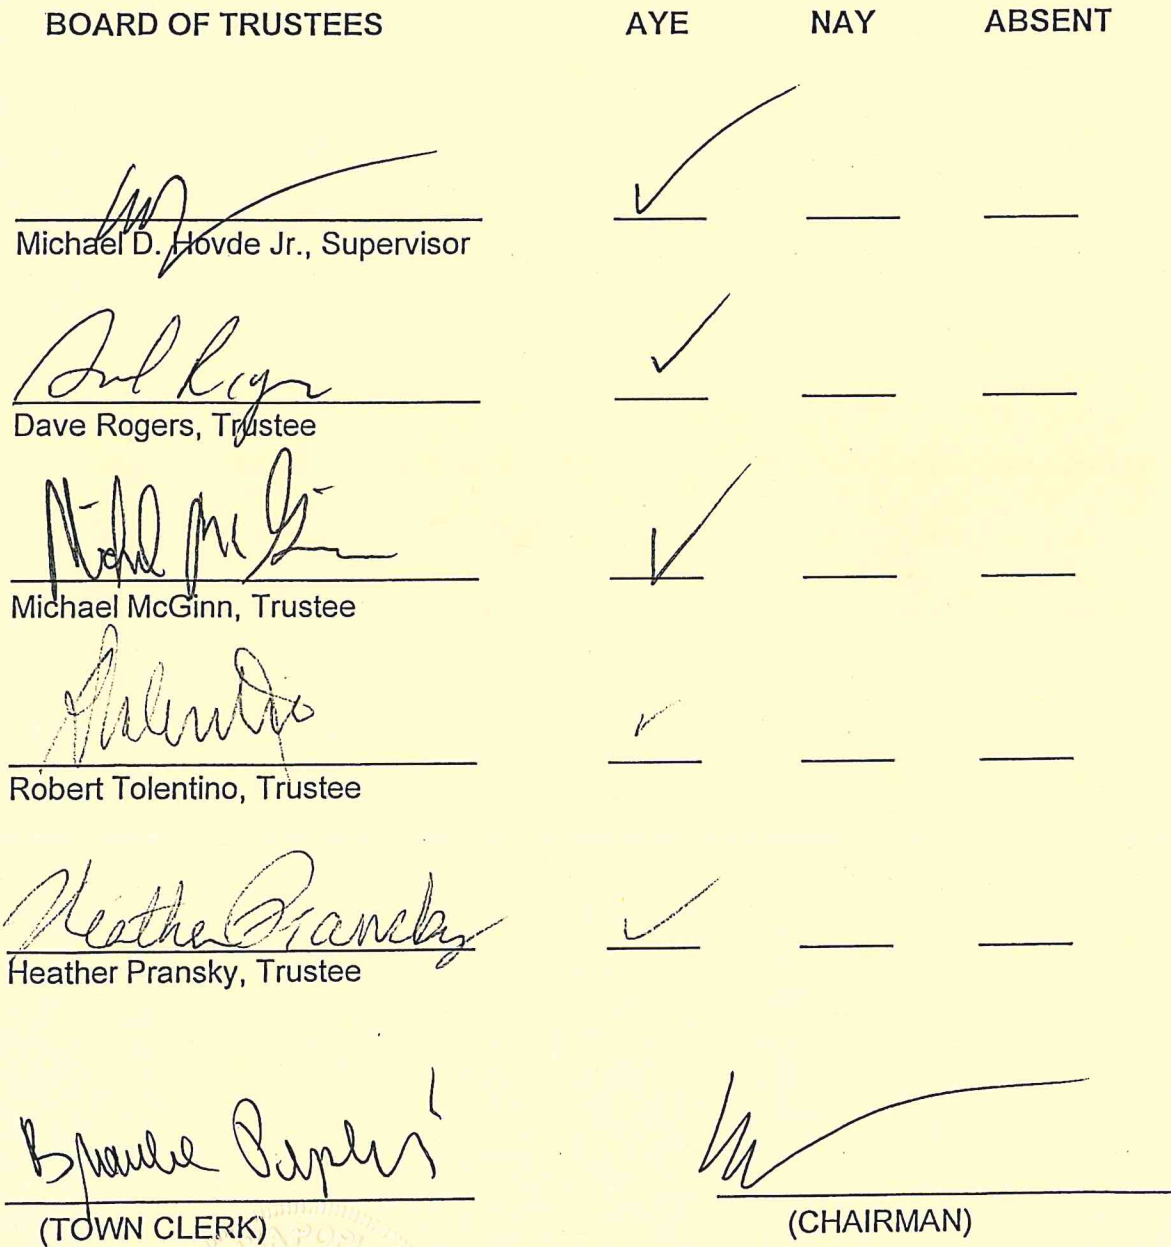 BOARD OF TRUSTEES AYE NAY ABSENT
Michael D. Hovde Jr., Supervisor
Dave Rogers
Dave Rogers, Trustee
Michael McGinn
Michael McGinn, Trustee
Robert Tolentino, Trustee
Heather Pransky
Heather Pransky, Trustee
(TOWN CLERK) (CHAIRMAN)